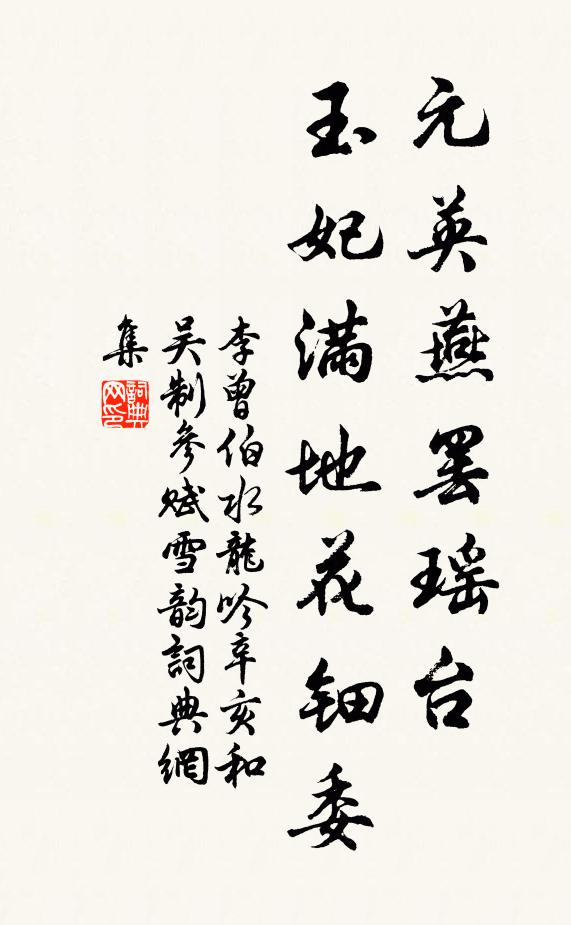 元英燕罢瑶台
玉妃满地花钿委
李曾伯水龍吟辛亥和
吴制参赋雪韵詞典網
集
詞典
网印